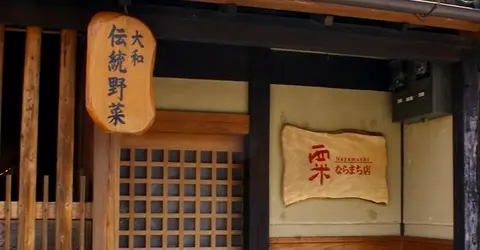 大和
伝統野菜
粟
ならまち店